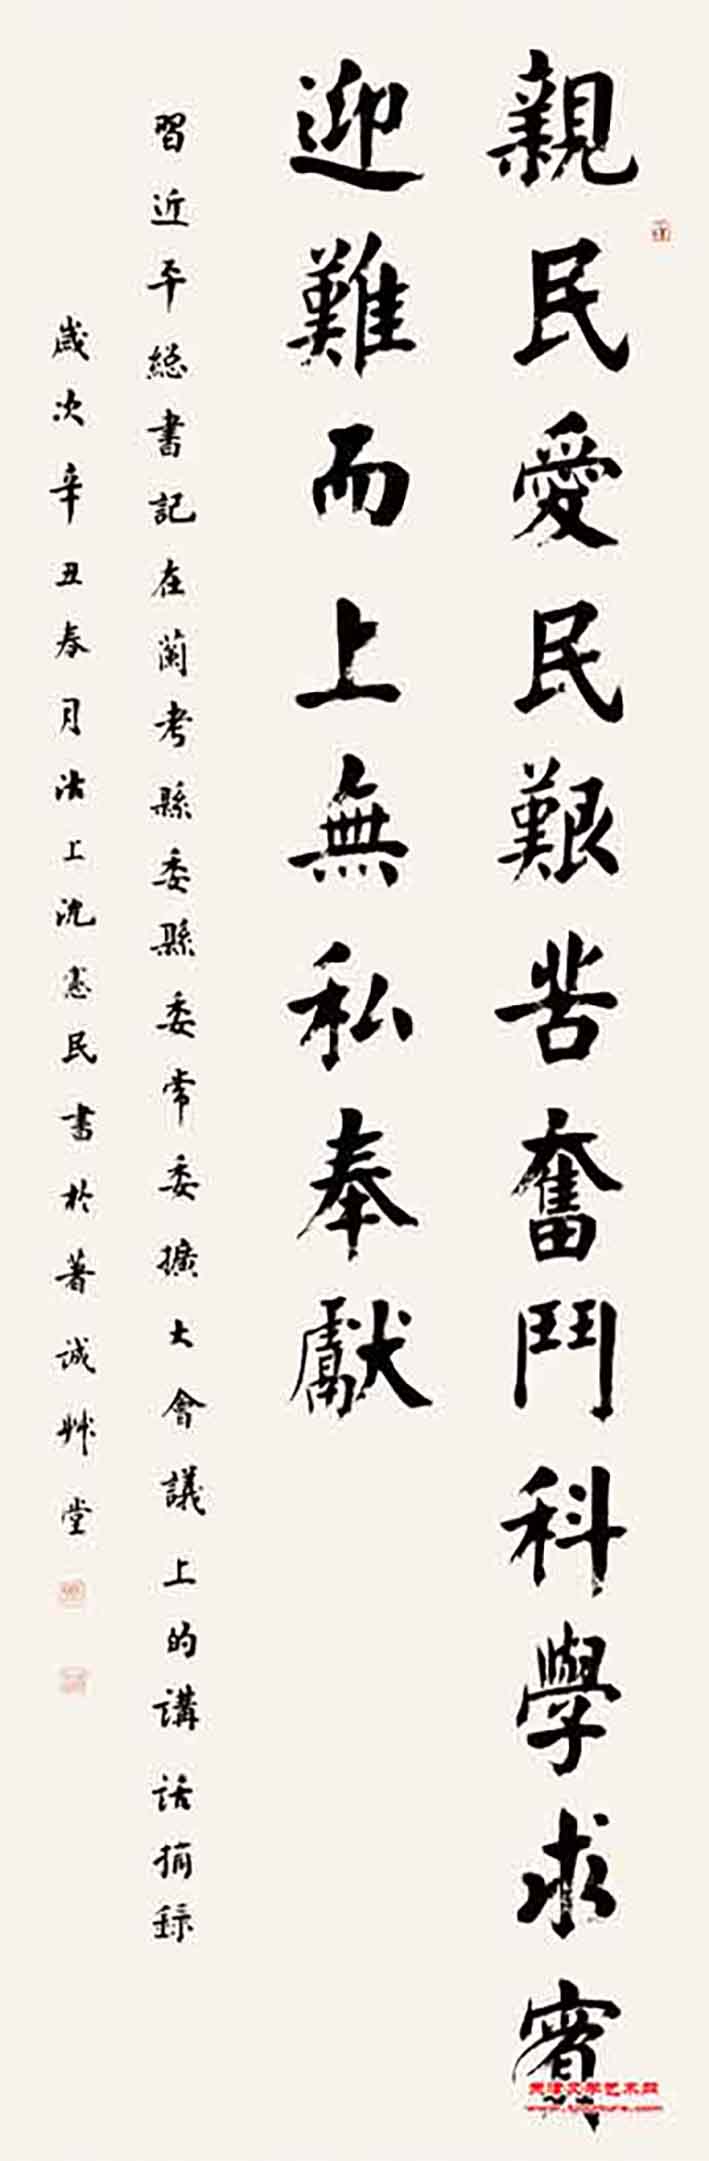 親民愛民艱苦奮鬥科學求實
迎難而上無私奉獻
習近平総書記在蘭考縣委縣委常委擴大會議上的講話摘録
歲次辛丑春月沽上沈憲民書於著誠艸堂
天津文学艺术网